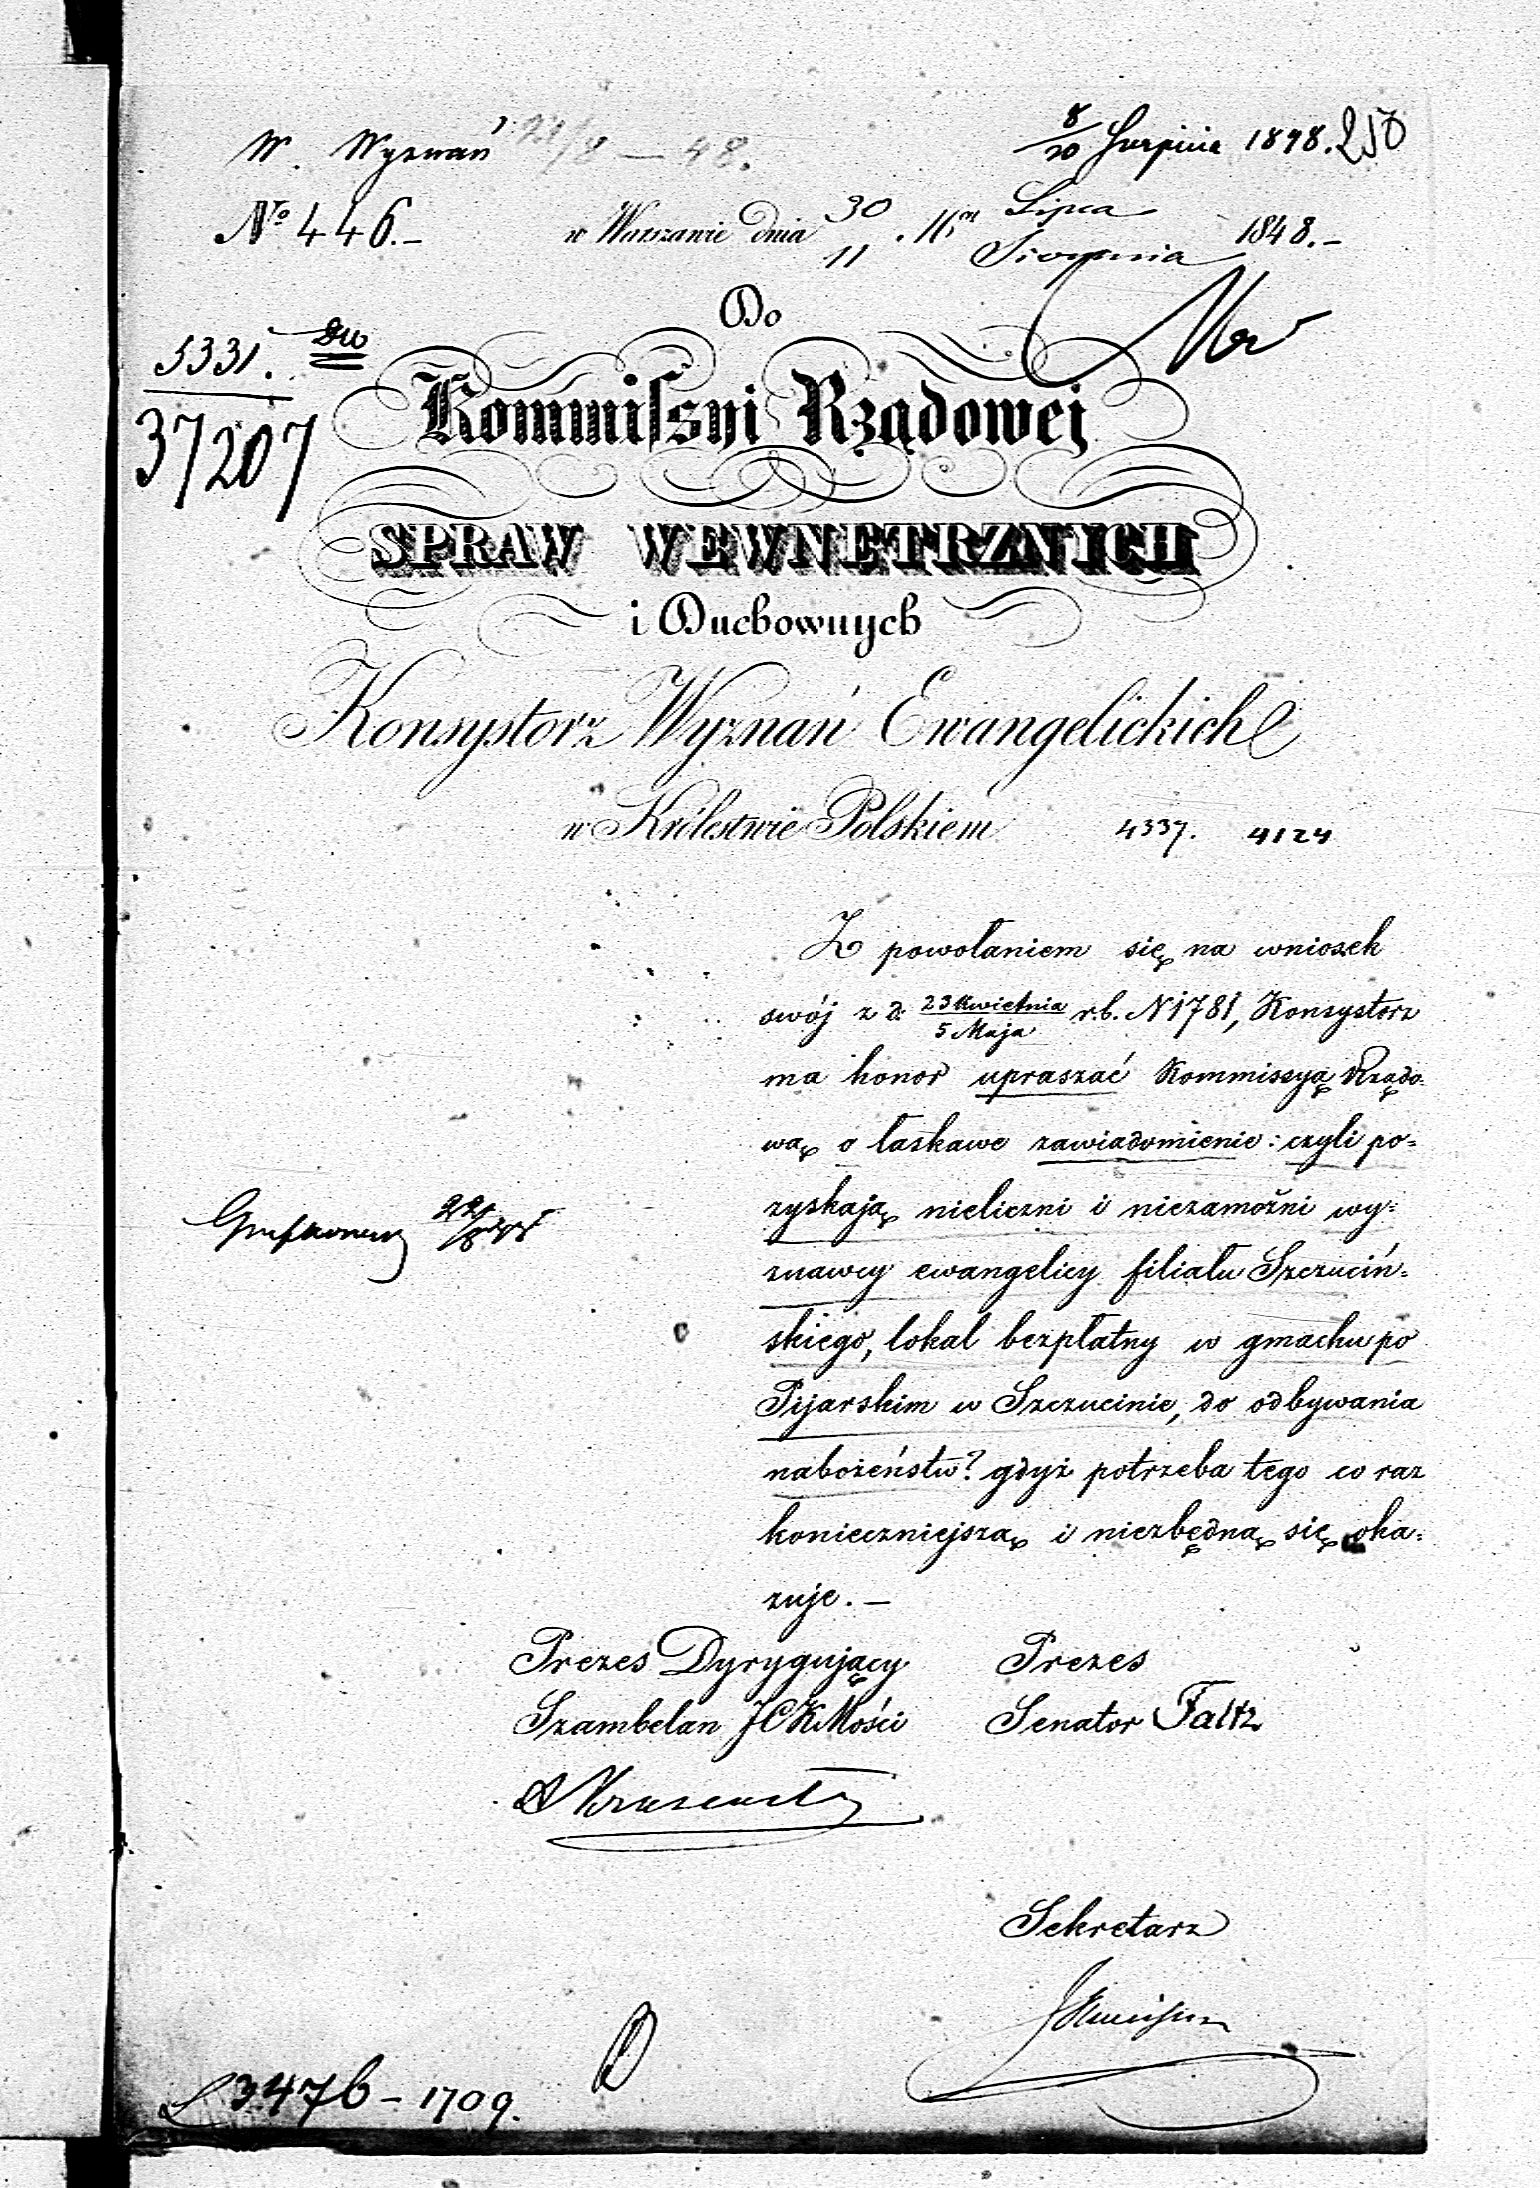 W. Wyznań 21/8 – 48.
8/20 Sierpnia 1848. 250
№ 446.–
w Warszawie dnia 30/11 Lipca/Sierpnia 1848.–
Do
5331.
37207
Kommissyi Rządowej
SPRAW WEWNĘTRZNYCH
i Duchownych
Konsystorz Wyznań Ewangelickich
w Królestwie Polskiem
4337. 4124
Z powołaniem się na wniosek
swój z d. 23 Kwietnia/5 Maja r.b. N 1781, Konsystorz
ma honor upraszać Kommissyą Rządo-
wą o łaskawe zawiadomienie: czyli po-
zyskają nieliczni i niezamożni wy-
znawcy ewangelicy filiału Szczuciń-
skiego, lokal bezpłatny w gmachu po
Pijarskim w Szczucinie, do odbywania
nabożeństw? gdyż potrzeba tego co raz
konieczniejszą i niezbędną się oka-
zuje.–
Prezes Dyrygujący
Szambelan JCKMości
Prezes
Senator Faltz
Sekretarz
3476 – 1709.